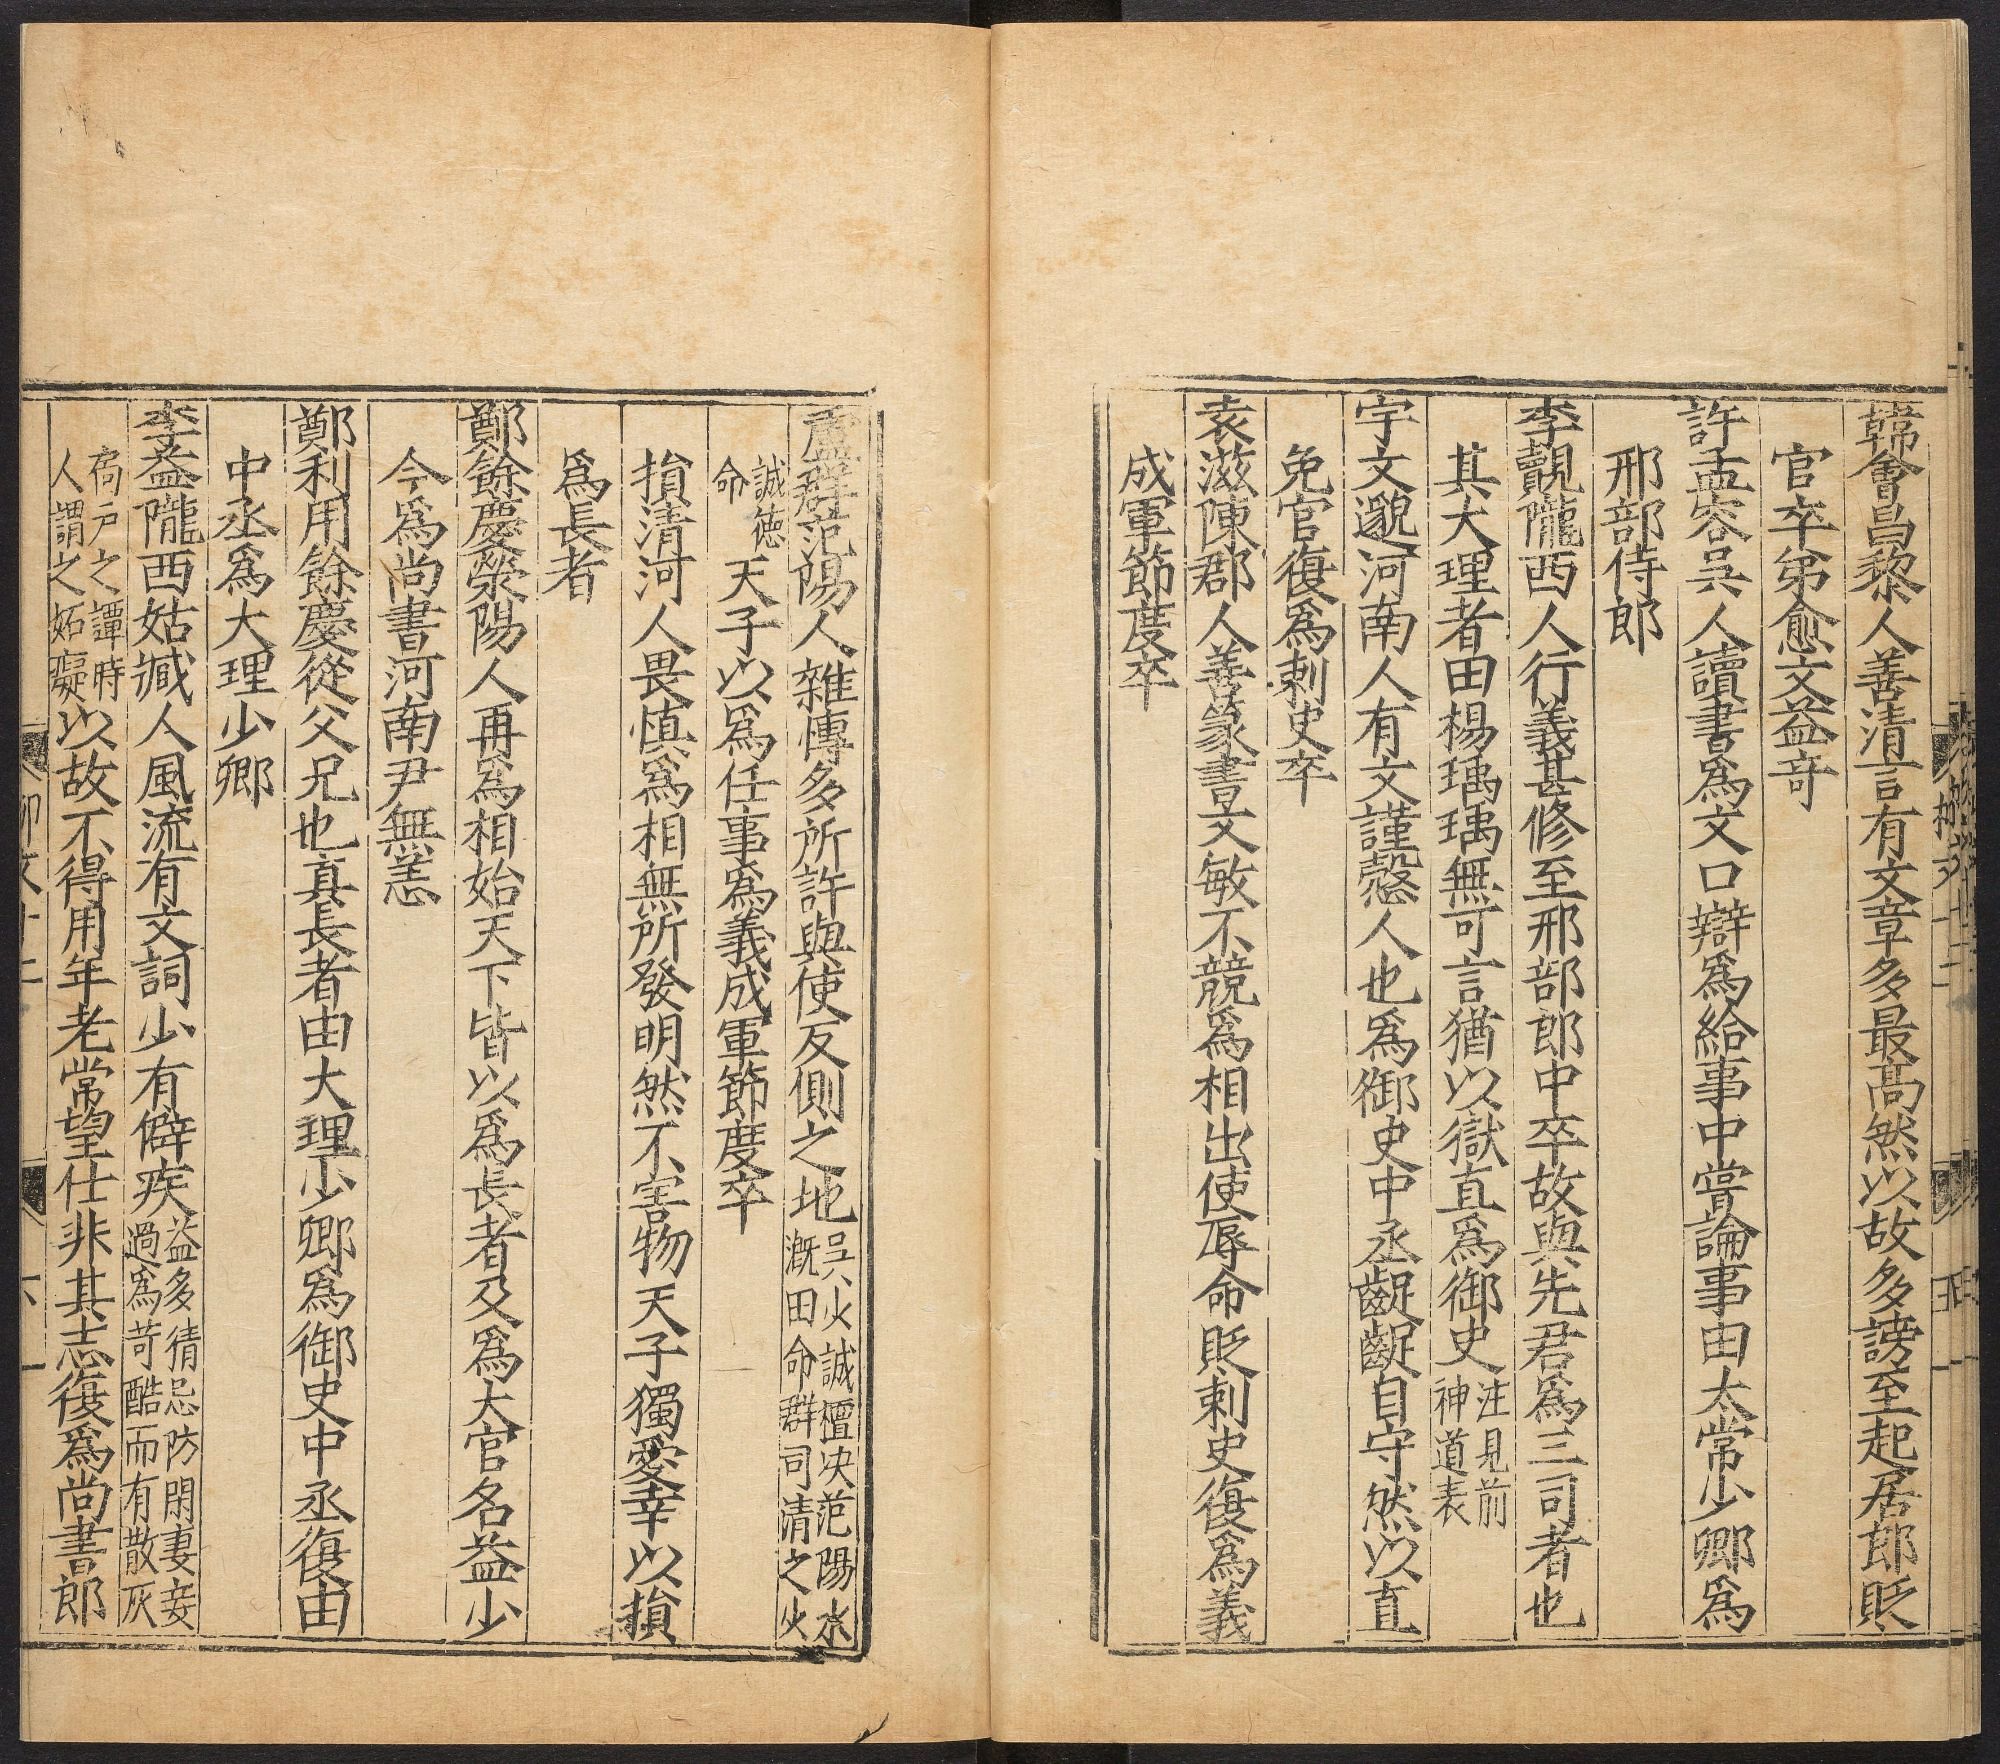 韓會昌黎人善清言有文章多最高然以故多謗至起居郎貶
官卒弟愈文益竒
許孟容吳人讀書爲文口辯爲給事中嘗論事由太常少卿爲
邢部侍郎
李覿隴西人行義甚修至邢部郎中卒故與先君爲三司者也
其大理者田楊瑀瑀無可言猶以獄直爲御史注見前神道表
宇文邈河南人有文謹慤人也爲御史中丞齪齪自守然以直
免官復爲刺史卒
袁滋陳郡人善篆書文敏不競爲相出使辱命貶刺史復爲義
成軍節度卒
盧群范陽人雜博多所許與使反側之地吳少誠擅决范陽水漑田命群司清之少
誠徳命天子以爲任事爲義成軍節度卒
損清河人畏慎爲相無所發明然不害物天子獨愛幸以損
爲長者
鄭餘慶滎陽人再爲相始天下皆以爲長者及爲大官名益少
今爲尚書河南尹無恙
鄭利用餘慶從父兄也真長者由大理少卿爲御史中丞復由
中丞爲大理少卿
李益隴西姑臧人風流有文詞少有僻疾益多猜忌防閑妻妾過爲苛酷而有散灰
扄戸之譚時人謂之妬癡以故不得用年老常望仕非其志復爲尚書郎